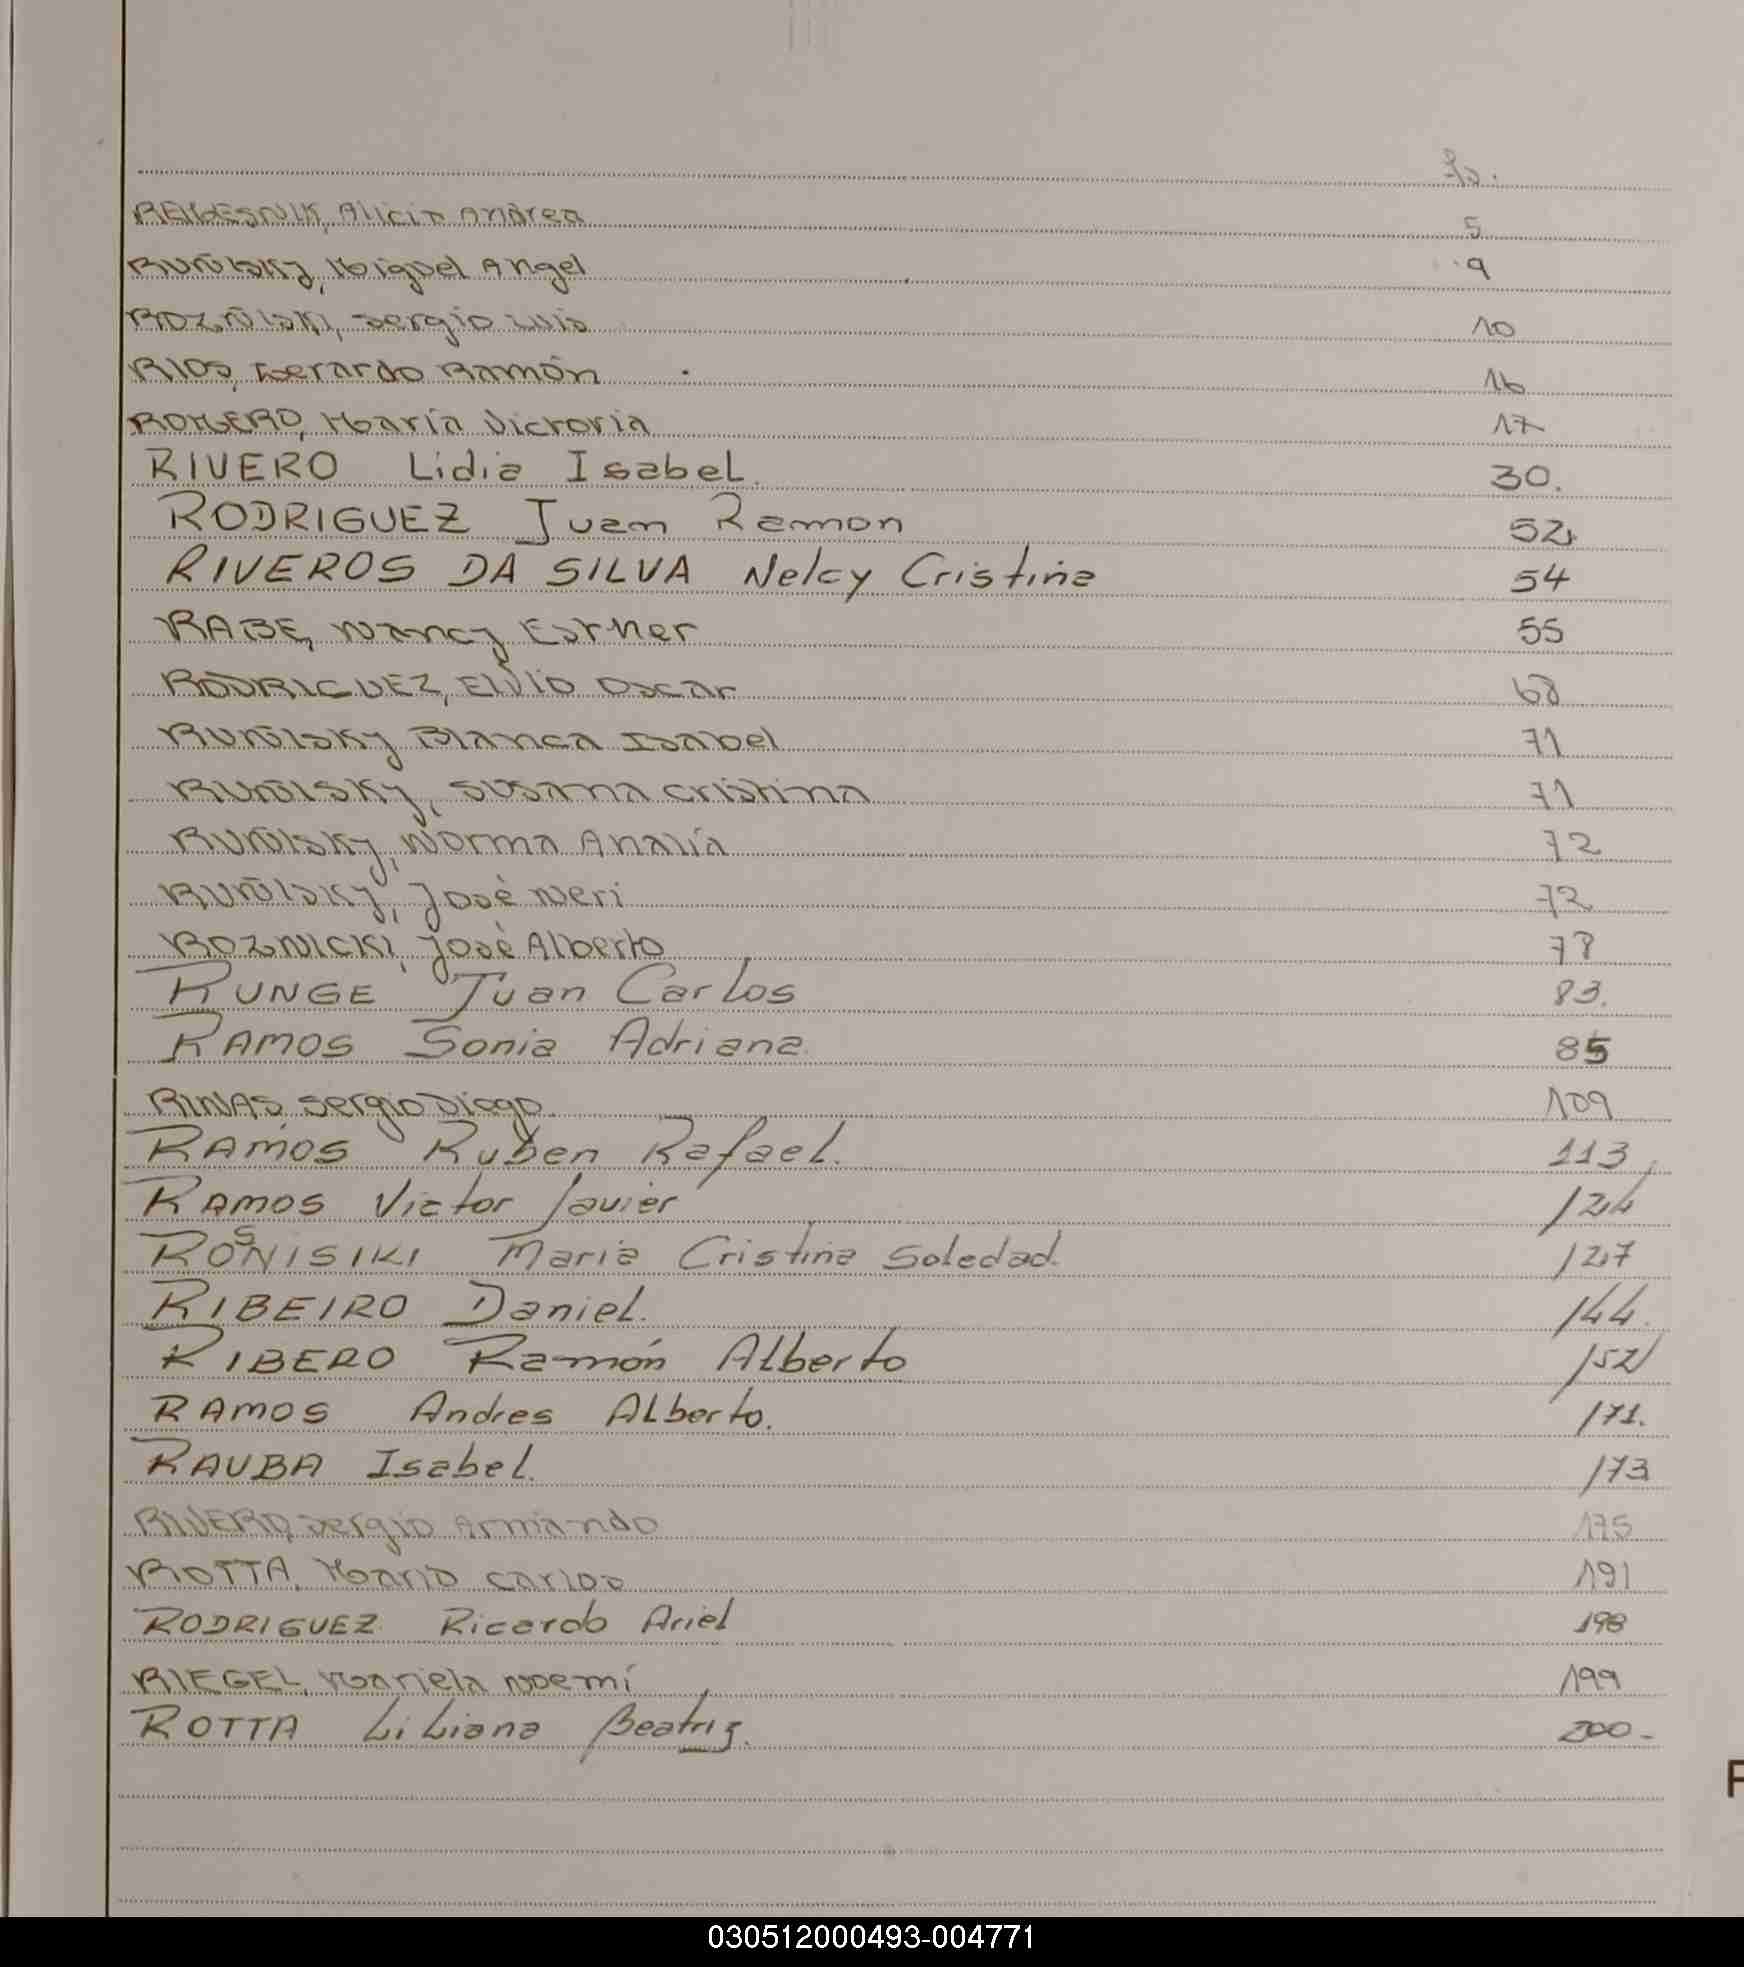 fs.
Alicia Andrea 5
Miguel Angel 9
Sergio Luis 10
RIOS, Gerardo Ramón 16
ROMERO, María Victoria 17
RIVERO Lidia Isabel. 30.
RODRIGUEZ Juan Ramon 52
RIVEROS DA SILVA Nelcy Cristina 54
RABE, Nancy Esther 55
RODRIGUEZ, Elvio Oscar 68
Blanca Isabel 71
Susana Cristina 71
Norma Analía 72
José Neri 72
ROZNICKI, José Alberto 78
RUNGE Juan Carlos 83.
RAMOS Sonia Adriana. 85
RINAS, Sergio Diego. 109
RAMOS Ruben Rafael. 113
RAMOS Victor Javier 124
Maria Cristina Soledad. 127
RIBEIRO Daniel. 144.
RIBERO Ramón Alberto 152
RAMOS Andres ALberto. 171.
RAUBA Isabel. 173
RIVERO, Sergio Armando 175
ROTTA, Mario Carlos 191
RODRIGUEZ Ricardo Ariel 198
RIEGEL, Mariela Noemí 199
ROTTA Liliana Beatriz. 200-
030512000493-004771